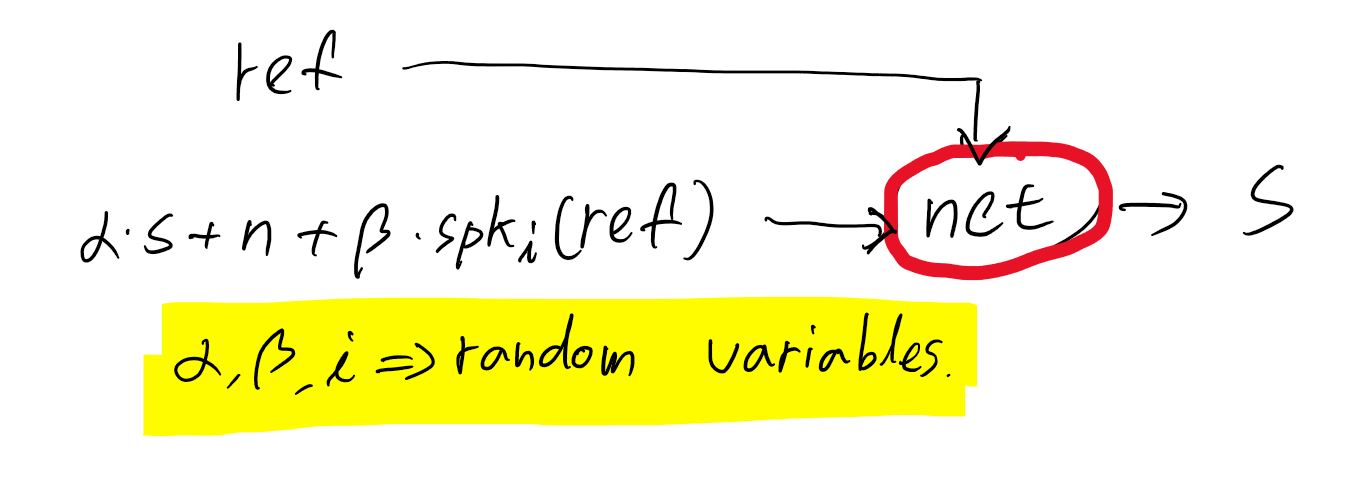 ref
α·s+n+β·spkᵢ(ref) → net → S
α,β,i⇒random variables.